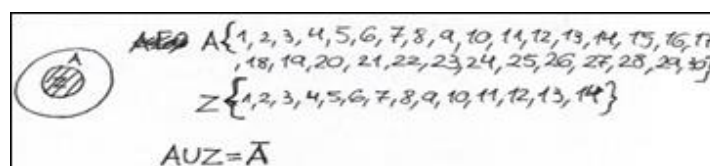 A
A{1,2,3,4,5,6,7,8,9,10,11,12,13,14,15,16,17
,18,19,20,21,22,23,24,25,26,27,28,29,30}
Z{1,2,3,4,5,6,7,8,9,10,11,12,13,14}
AUZ=A̅